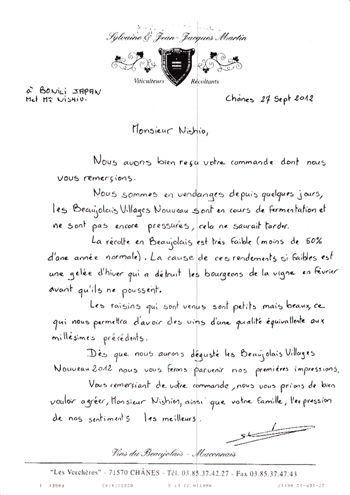 Sylvaine & Jean-Jacques Martin
Viticulteurs Récoltants
à BONILI JAPAN
Chânes 27 Sept 2012
Monsieur Nishio,
Nous avons bien reçu votre commande dont nous
vous remersions.
Nous sommes en vendanges depuis quelques jours,
les Beaujolais Villages Nouveau sont en cours de fermentation et
ne sont pas encore pressurés, cela ne saurait tarder.
La récolte en Beaujolais est très faible (moins de 50%
d'une année normale). La cause de ces rendements si faibles est
une gelée d'hiver qui a détruit les bourgeons de la vigne en février
avant qu'ils ne poussent.
Les raisins qui sont venus sont petits mais beaux, ce
qui nous permettra d'avoir des vins d'une qualité équivallente aux
millésimes précédents.
Dès que nous aurons dégusté les Beaujolais Villages
Nouveau 2012 nous vous ferons parvenir nos premières impressions.
Vous remersiant de votre commande, nous vous prions de bien
vouloir agréer, Monsieur Nishion, ainsi que votre famille, l'expression
de nos sentiments les meilleurs.
Vins du Beaujolais - Maconnais
"Les Verchères" - 71570 CHÂNES - Tél. 03.85.37.42.27 - Fax 03.85.37.47.43